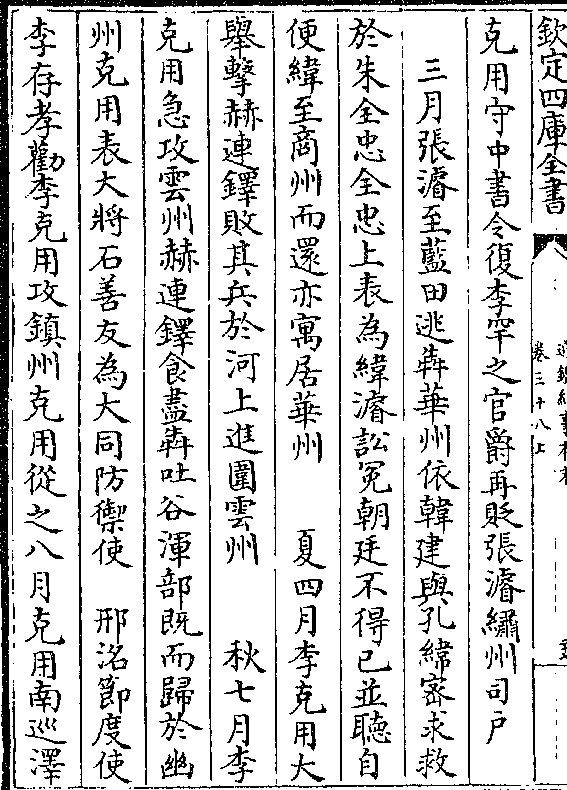 欽定四庫全書
克用守中書令復李罕之官爵再貶張濬繡州司戶
三月張濬至藍田逃犇華州依韓建與孔緯宻求救
於朱全忠全忠上表為緯濬訟冤朝廷不得已並聽自
便緯至商州而還亦寓居華州　夏四月李克用大
舉擊赫連鐸敗其兵於河上進圍雲州　秋七月李
克用急攻雲州赫連鐸食盡犇吐谷渾部既而歸於幽
州克用表大將石善友為大同防禦使　邢洺節度使
李存孝勸李克用攻鎮州克用從之八月克用南巡澤